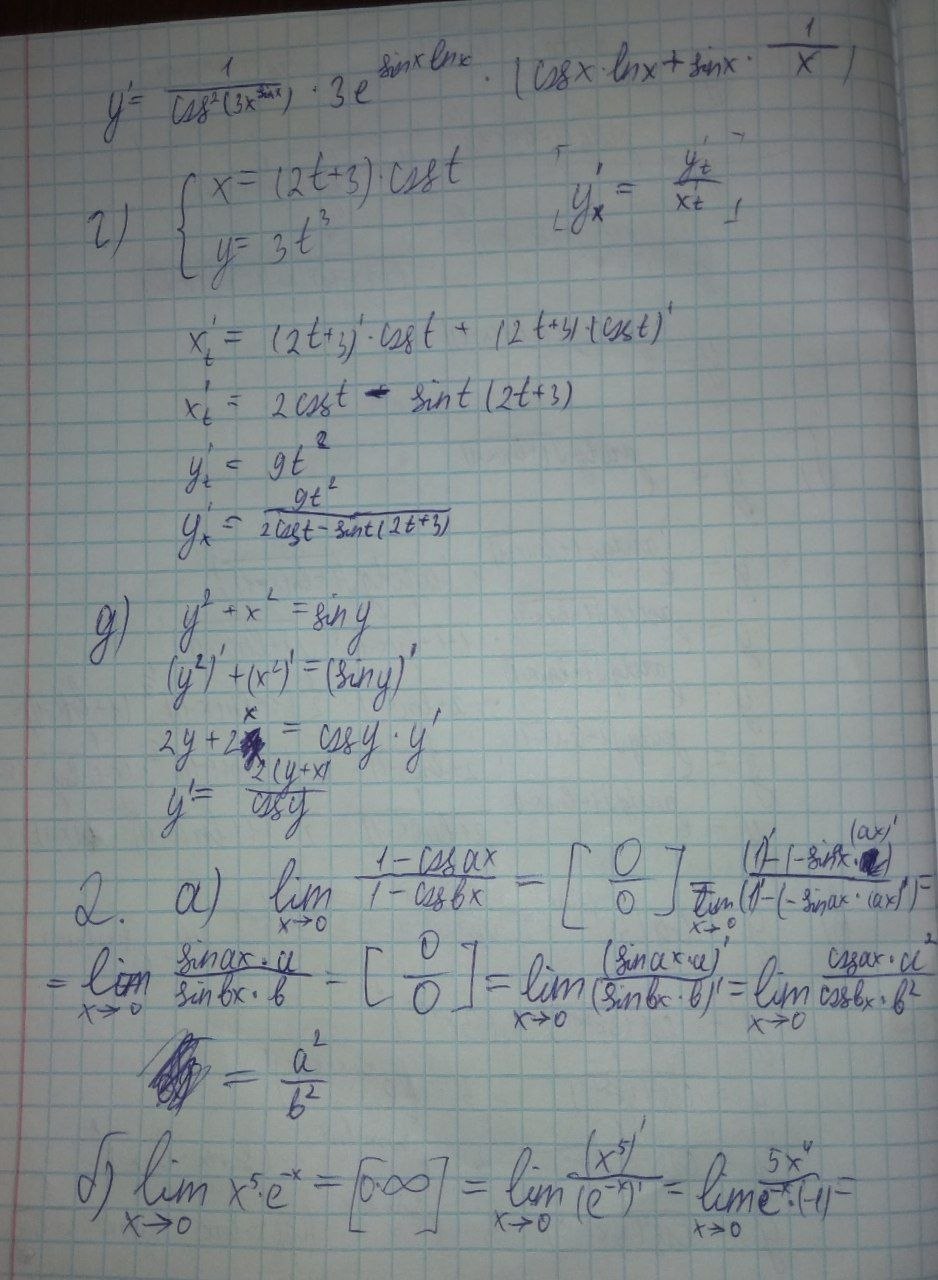 y' = 1/cos²(3x^sinx) · 3e^(sinx lnx) · (cosx · lnx + sinx · 1/x)
г) { x = (2t+3) · cost
y = 3t³
[y'ₓ = y'ₜ/x'ₜ]
x'ₜ = (2t+3)' · cost + (2t+3) · (cost)'
x'ₜ = 2cost - sint(2t+3)
y'ₜ = 9t²
y'ₓ = 9t²/(2cost - sint(2t+3))
д) y² + x² = siny
(y²)' + (x²)' = (siny)'
2y + 2x = cosy · y'
y' = 2(y+x)/cosy
2. а) lim x→0 (1-cosax)/(1-cosbx) = [0/0] = lim x→0 ((1)'-(-sinx · (ax)'))/((1)'-(-sinax · (ax)')) =
= lim x→0 (sinax · a)/(sinbx · b) = [0/0] = lim x→0 (sinax · a)'/(sinbx · b)' = lim x→0 (cosax · a²)/(cosbx · b²)
= a²/b²
б) lim x→0 x⁵ · e^-x = [0·∞] = lim x→0 (x⁵)'/(e^-x)' = lim x→0 5x⁴/(e^-x · (-1)) =